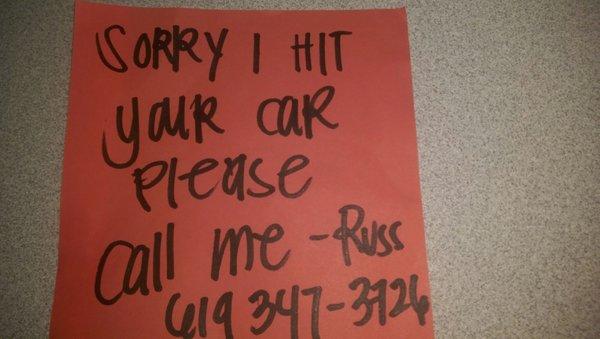 SORRY I HIT
your car
please
call me - Russ
619 347-3726